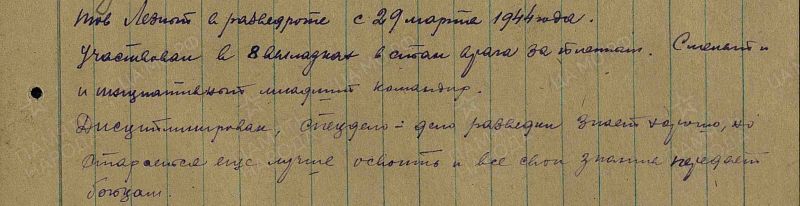 тов Ледном в разведроте с 29 марта 1944 года.
Участвовал в 8 вылазках в стан врага за пленным. Смелый и
и инициативный младший командир.
Дисциплинирован, спецдело = дело разведки знает хорошо, но
старается еще лучше освоить и все свои знания передает
бойцам.